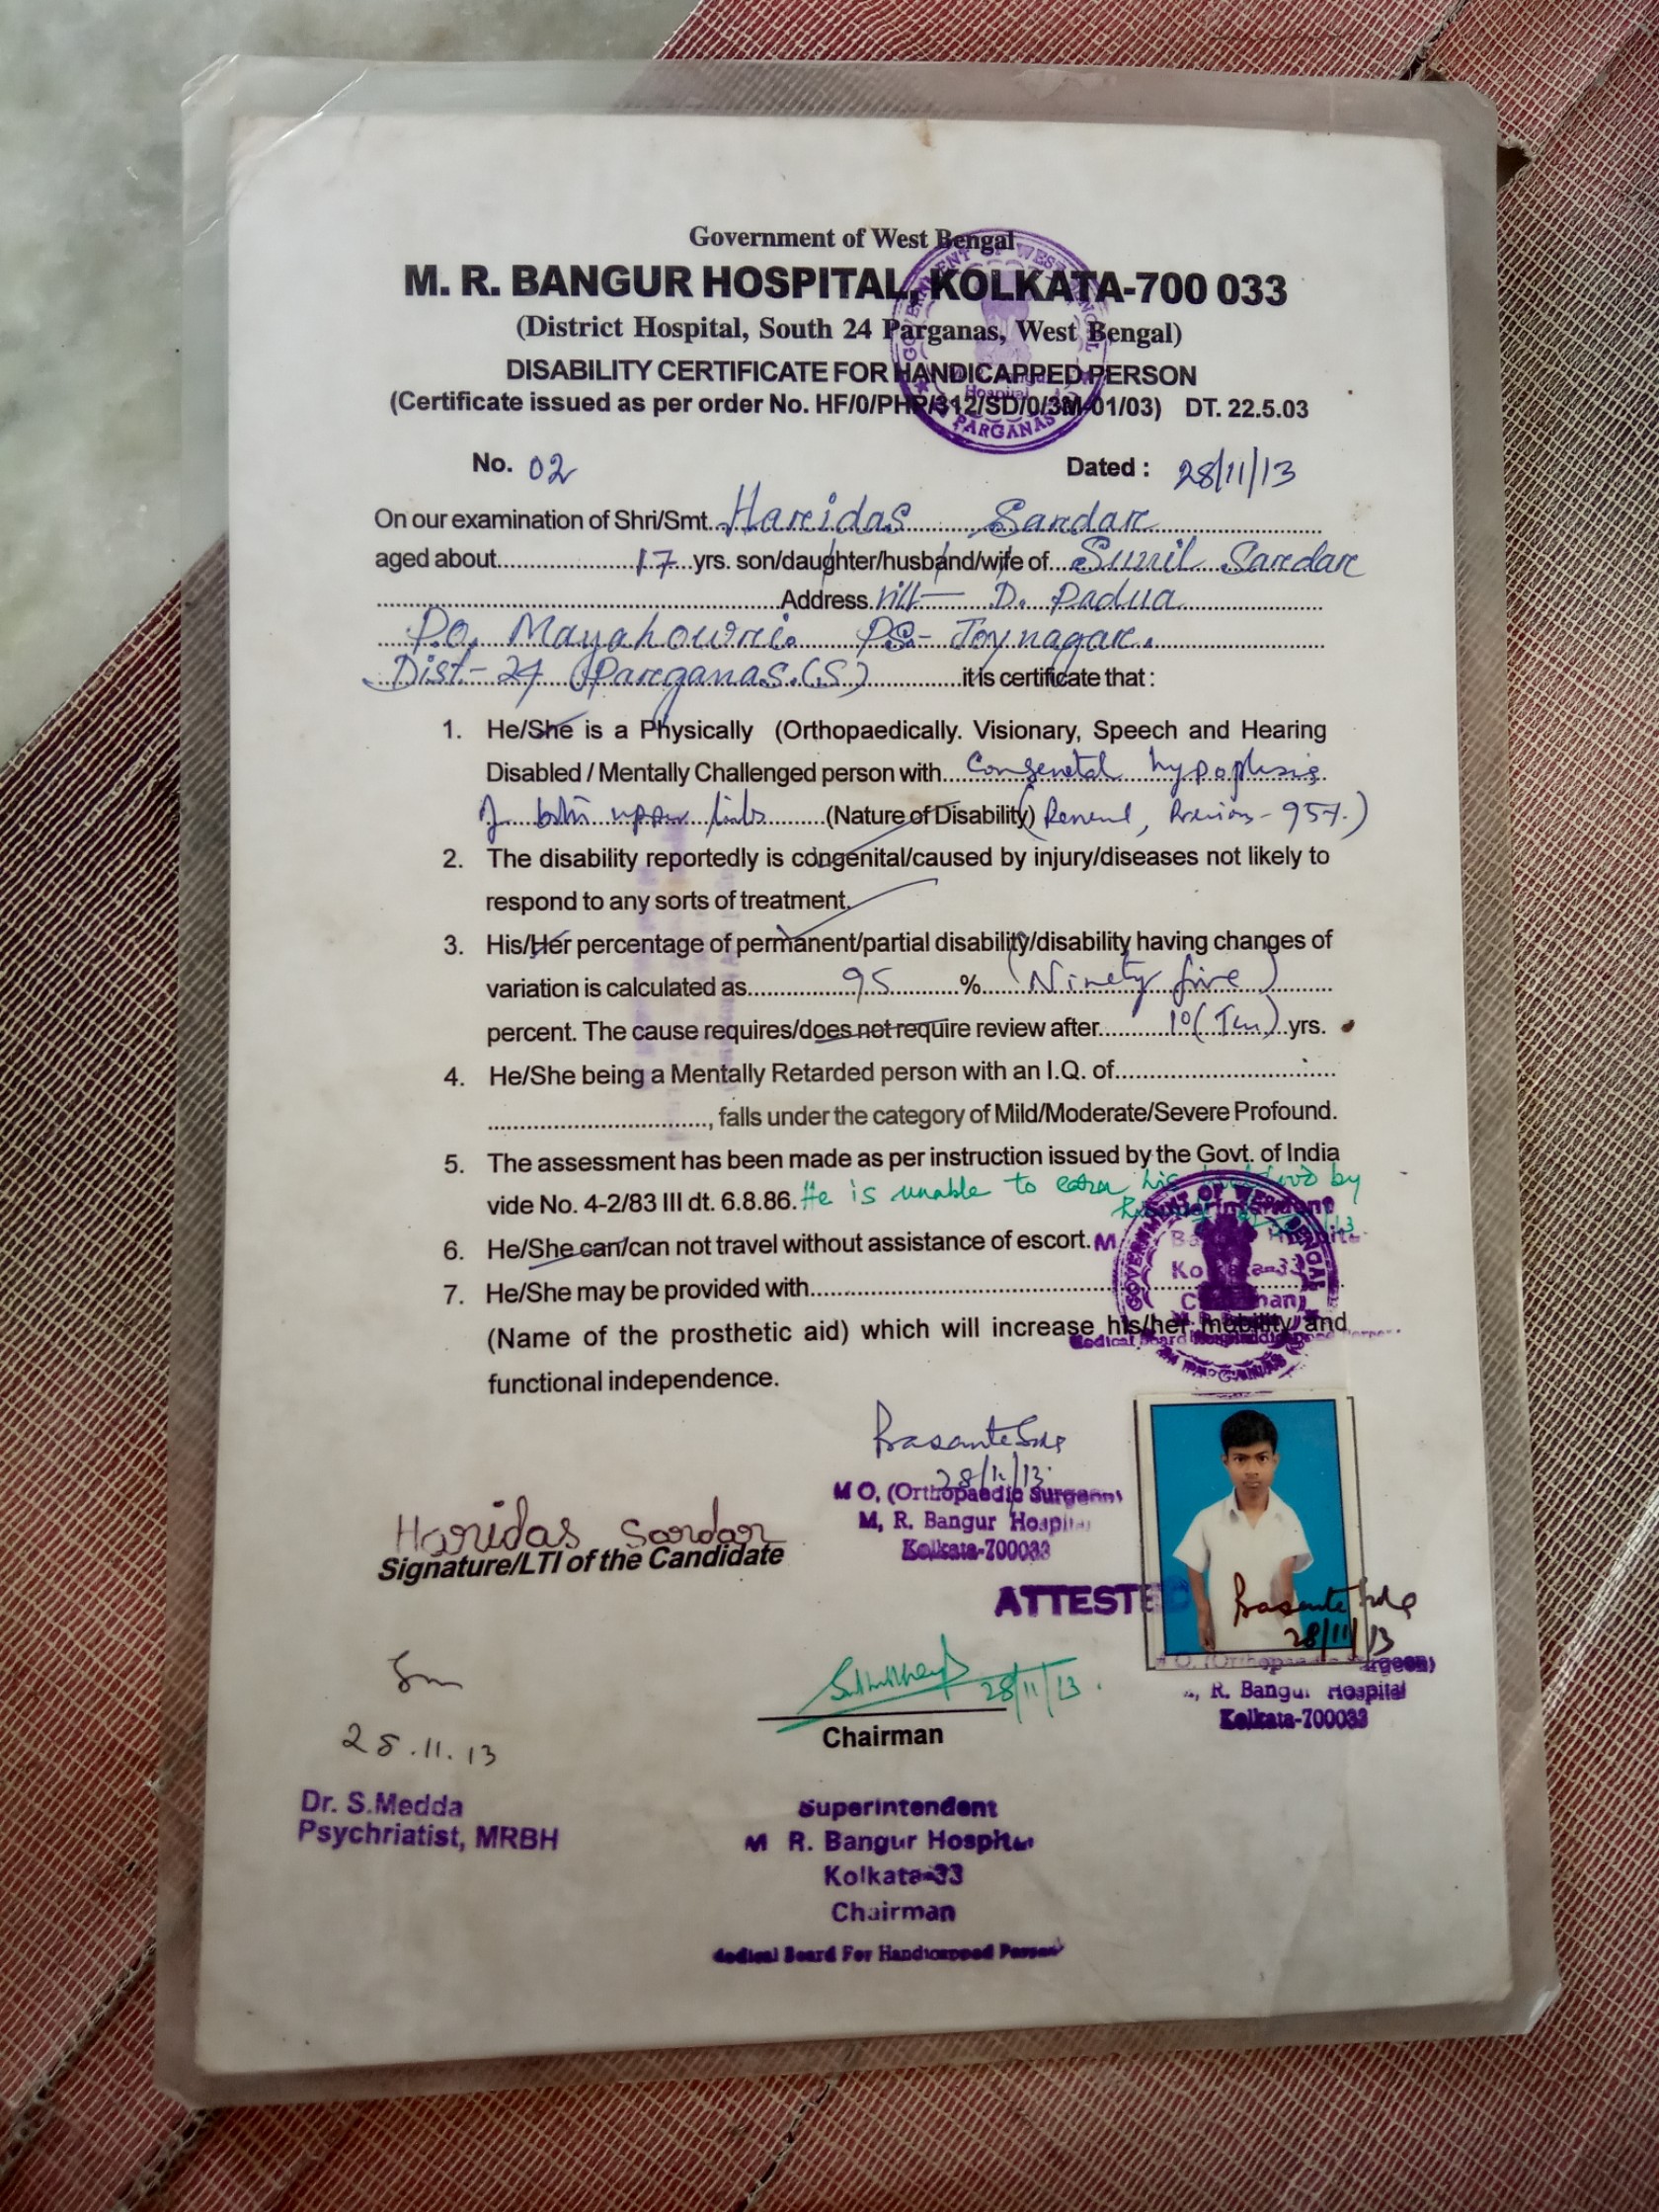 Government of West Bengal
M. R. BANGUR HOSPITAL, KOLKATA-700 033
(District Hospital, South 24 Parganas, West Bengal)
DISABILITY CERTIFICATE FOR HANDICAPPED PERSON
(Certificate issued as per order No. HF/0/PHP/312/SD/0/3M-01/03) DT. 22.5.03
No. 02 Dated : 28/11/13
On our examination of Shri/Smt. Haridas Sardar
aged about 17 yrs. son/daughter/husband/wife of Sunil Sardar
Address Vill- D. Padua
Po. Mayahowri. PS- Joynagar.
Dist- 24 Parganas.(S) it is certificate that :
1. He/She is a Physically (Orthopaedically. Visionary, Speech and Hearing
Disabled / Mentally Challenged person with Congenital hypoplasia
of both upper limbs (Nature of Disability) (Renewal, Previous - 95%)
2. The disability reportedly is congenital/caused by injury/diseases not likely to
respond to any sorts of treatment.
3. His/Her percentage of permanent/partial disability/disability having changes of
variation is calculated as 95 % (Ninety five)
percent. The cause requires/does not require review after 10 (Ten) yrs.
4. He/She being a Mentally Retarded person with an I.Q. of
, falls under the category of Mild/Moderate/Severe Profound.
5. The assessment has been made as per instruction issued by the Govt. of India
vide No. 4-2/83 III dt. 6.8.86. He is unable to earn his livelihood by
6. He/She can/can not travel without assistance of escort.
7. He/She may be provided with
(Name of the prosthetic aid) which will increase his/her mobility and
functional independence.
28/11/13
M O, (Orthopaedic Surgeon)
M, R. Bangur Hospital
Kolkata-700033
Haridas Sardar
Signature/LTI of the Candidate
ATTESTED
28/11/13
M.O. (Orthopaedic Surgeon)
R. Bangur Hospital
Kolkata-700033
28/11/13.
Chairman
28.11.13
Dr. S.Medda
Psychriatist, MRBH
Superintendent
M R. Bangur Hospital
Kolkata-33
Chairman
Medical Board For Handicapped Person